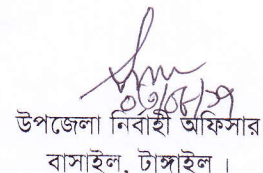 উপজেলা নির্বাহী অফিসার
বাসাইল, টাঙ্গাইল ।